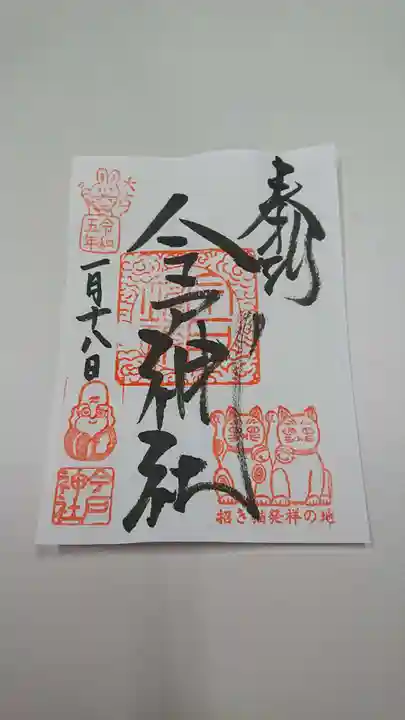 奉拝
今戸神社
令和
五年
一月十八日
今戸
神社
招き猫発祥の地